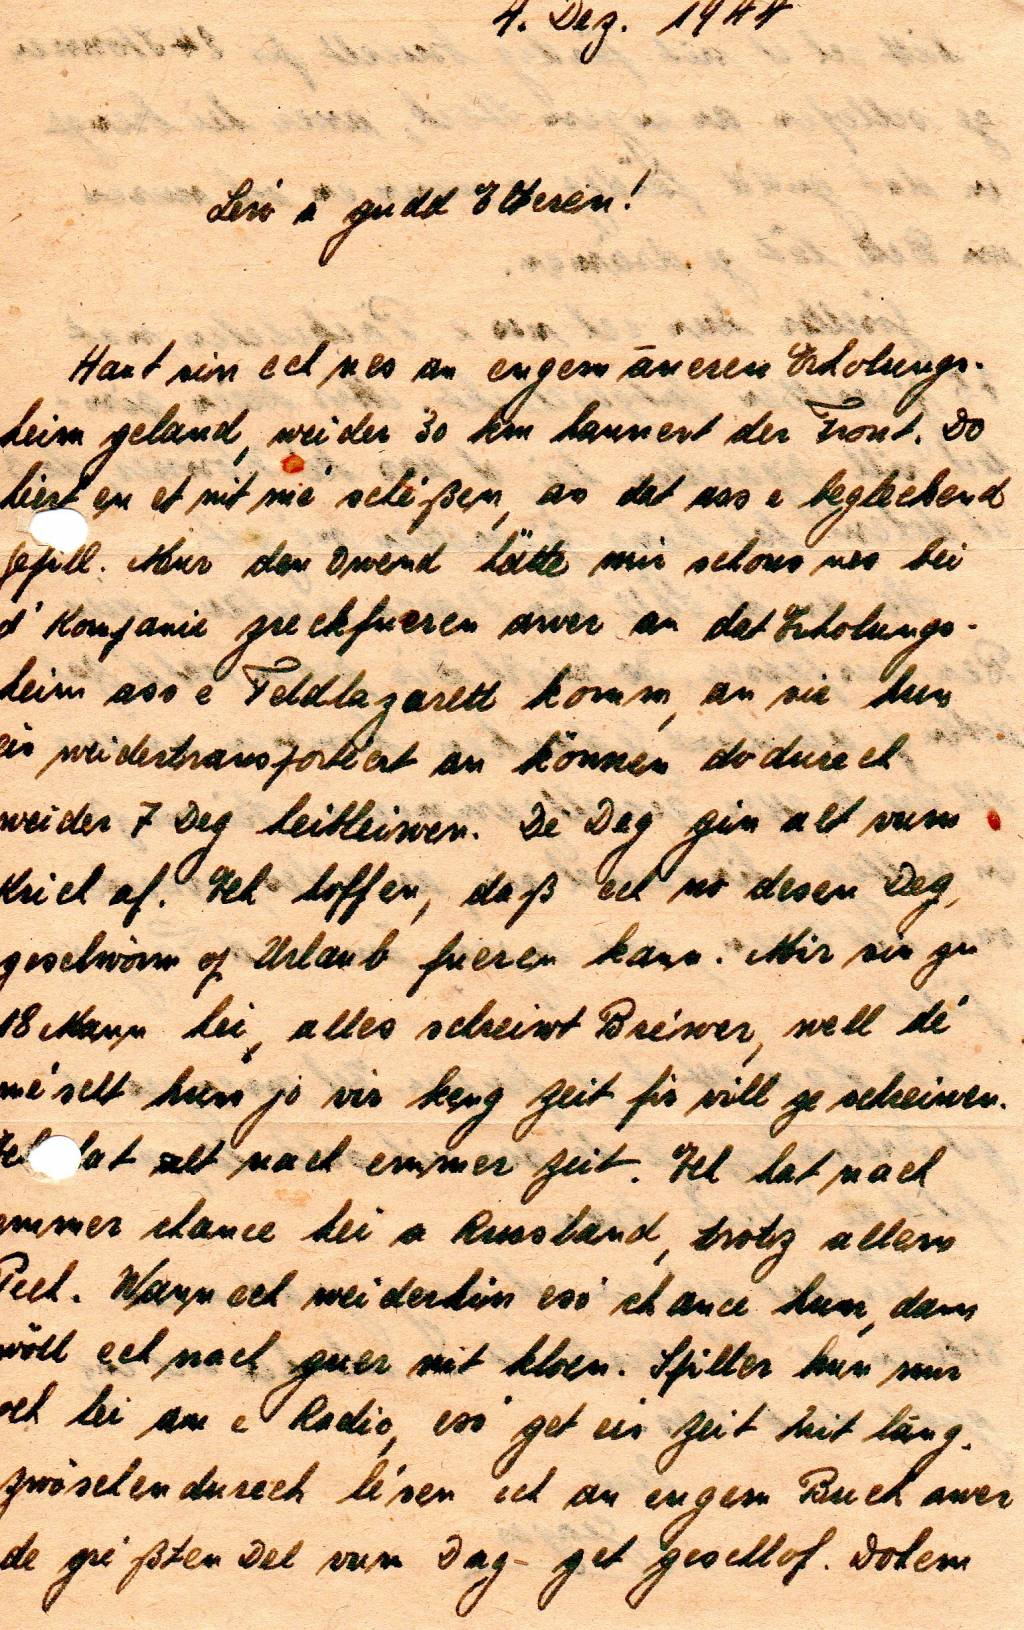 4. Dez. 1944
Léiw a gudd Elteren!
Haut sin ech nes an engem äneren Erholungs-
heim geland, weider 30 km hannert der Front. Do
héert en et nit mé schéißen, as dat ass e begleckend
Gefill. Nur den Owend hätte mir schons nes bei
d' Kompanie zreckfueren awer an dat Erholungs-
heim ass e Feldlazarett komm, an sie hun
eis weidertransportéert an können dodurech
weider 7 Deg heibleiwen. Dé Deg gin alt vum
Krich af. Ech hoffen, daß ech no desen Deg,
geschwönn op Urlaub fueren kann. Mir sin zu
18 Mann hei, alles schreiwt Bréiwer, well dé
méscht hun jo vir keng Zeit fir vill ze schreiwen.
hat alt nach emmer Zeit. Ech hat nach
emmer chance hei a Russland, trotz allem
Pech. Wann ech weiderhin esó chance hun, dann
wöll ech nach guer nit kloen. Spiller hun mir
och hei an e Radio, esó get eis Zeit nit lang.
Zwöschendurech lésen ech an engem Buch awer
de gréißten Del vum Dag get geschlof. Dohem